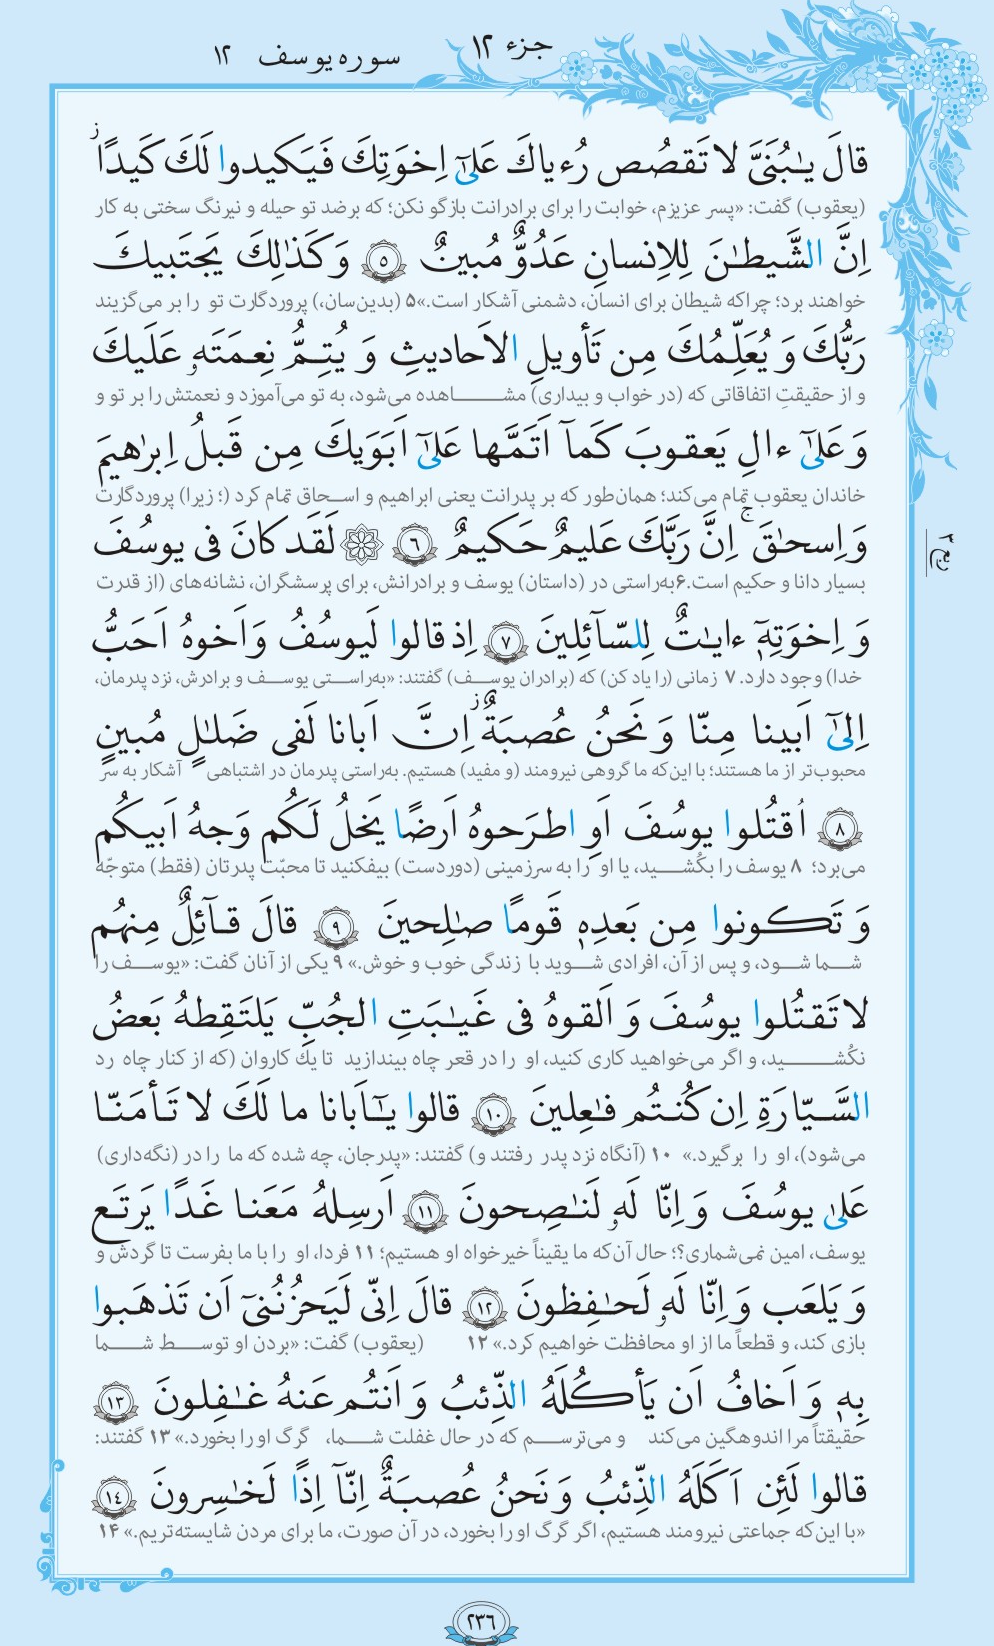 جزء ۱۲
سوره یوسف ۱۲
قالَ یـٰبُنَیَّ لا تَقصُص رُءیاكَ عَلیٰٓ اِخوَتِكَ فَیَکیدوا لَكَ کَیدًاۖز
(یعقوب) گفت: «پسر عزیزم، خوابت را برای برادرانت بازگو نکن؛ که برضد تو حیله و نیرنگ سختی به کار
اِنَّ الشَّیطـٰنَ لِلاِنسانِ عَدُوٌّ مُبینٌ ﴿٥﴾ وَ کَذٰلِكَ یَجتَبیكَ
خواهند برد؛ چراکه شیطان برای انسان، دشمنی آشکار است.»۵ (بدین‌سان،) پروردگارت تو را بر می‌گزیند
رَبُّكَ وَ یُعَلِّمُكَ مِن تَأویلِ الاَحادیثِ وَ یُتِمُّ نِعمَتَهٗ عَلَیكَ
و از حقیقتِ اتفاقاتی که (در خواب و بیداری) مشـــــاهده می‌شود، به تو می‌آموزد و نعمتش را بر تو و
وَ عَلیٰٓ ءالِ یَعقوبَ کَمآ اَتَمَّها عَلیٰٓ اَبَوَیكَ مِن قَبلُ اِبرٰهیمَ
خاندان یعقوب تمام می‌کند؛ همان‌طور که بر پدرانت یعنی ابراهیم و اسـحاق تمام کرد (؛ زیرا) پروردگارت
وَ اِسحـٰقَۚج اِنَّ رَبَّكَ عَلیمٌ حَکیمٌ ﴿٦﴾ ۞ لَقَد کانَ فی یوسُفَ
بسیار دانا و حکیم است.۶به‌راستی در (داستان) یوسف و برادرانش، برای پرسشگران، نشانه‌های (از قدرت
ربع ۲
وَ اِخوَتِهٖٓ ءایـٰتٌ لِلسّآئِلینَ ﴿٧﴾ اِذ قالوا لَیوسُفُ وَ اَخوهُ اَحَبُّ
خدا) وجود دارد. ۷ زمانی (را یاد کن) که (برادران یوســف) گفتند: «به‌راســتی یوســف و برادرش، نزد پدرمان،
اِلیٰٓ اَبینا مِنّا وَ نَحنُ عُصبَةٌز اِنَّ اَبانا لَفی ضَلـٰلٍ مُبینٍ
محبوب‌تر از ما هستند؛ با این‌که ما گروهی نیرومند (و مفید) هستیم. به‌راستی پدرمان در اشتباهی آشکار به سر
﴿٨﴾ اُقتُلوا یوسُفَ اَوِ اطرَحوهُ اَرضًا یَخلُ لَکُم وَجهُ اَبیکُم
می‌برد؛ ۸ یوسف را بکُشـــید، یا او را به سرزمینی (دوردست) بیفکنید تا محبّت پدرتان (فقط) متوجّه
وَ تَکونوا مِن بَعدِهٖ قَومًا صـٰلِحینَ ﴿٩﴾ قالَ قآئِلٌ مِنهُم
شــما شــود، و پس از آن، افرادی شــوید با زندگی خوب و خوش.» ۹ یکی از آنان گفت: «یوســف را
لا تَقتُلوا یوسُفَ وَ اَلقوهُ فی غَیـٰبَتِ الجُبِّ یَلتَقِطهُ بَعضُ
نکُشــــید، و اگر می‌خواهید کاری کنید، او را در قعر چاه بیندازید تا یك کاروان (که از کنار چاه رد
السَّیّارَةِ اِن کُنتُم فـٰعِلینَ ﴿١٠﴾ قالوا یـٰٓاَبانا ما لَكَ لا تَأمَنّا
می‌شود)، او را برگیرد.» ۱۰ (آنگاه نزد پدر رفتند و) گفتند: «پدرجان، چه شده که ما را در (نگه‌داری)
عَلیٰ یوسُفَ وَ اِنّا لَهٗ لَنـٰصِحونَ ﴿١١﴾ اَرسِلهُ مَعَنا غَدًا یَرتَع
یوسف، امین نمی‌شماری؟؛ حال آن‌که ما یقیناً خیرخواه او هستیم؛ ۱۱ فردا، او را با ما بفرست تا گردش و
وَ یَلعَب وَ اِنّا لَهٗ لَحـٰفِظونَ ﴿١٢﴾ قالَ اِنّی لَیَحزُنُنیٓ اَن تَذهَبوا
بازی کند، و قطعاً ما از او محافظت خواهیم کرد.» ۱۲ (یعقوب) گفت: «بردن او توســـط شـــما
بِهٖ وَ اَخافُ اَن یَأکُلَهُ الذِّئبُ وَ اَنتُم عَنهُ غـٰفِلونَ ﴿١٣﴾
حقیقتاً مرا اندوهگین می‌کند و می‌ترســم که در حال غفلت شــما، گرگ او را بخورد.» ۱۳ گفتند:
قالوا لَئِن اَکَلَهُ الذِّئبُ وَ نَحنُ عُصبَةٌ اِنّآ اِذًا لَخـٰسِرونَ ﴿١٤﴾
«با این‌که جماعتی نیرومند هستیم، اگر گرگ او را بخورد، در آن صورت، ما برای مردن شایسته‌تریم.» ۱۴
۲۳۶